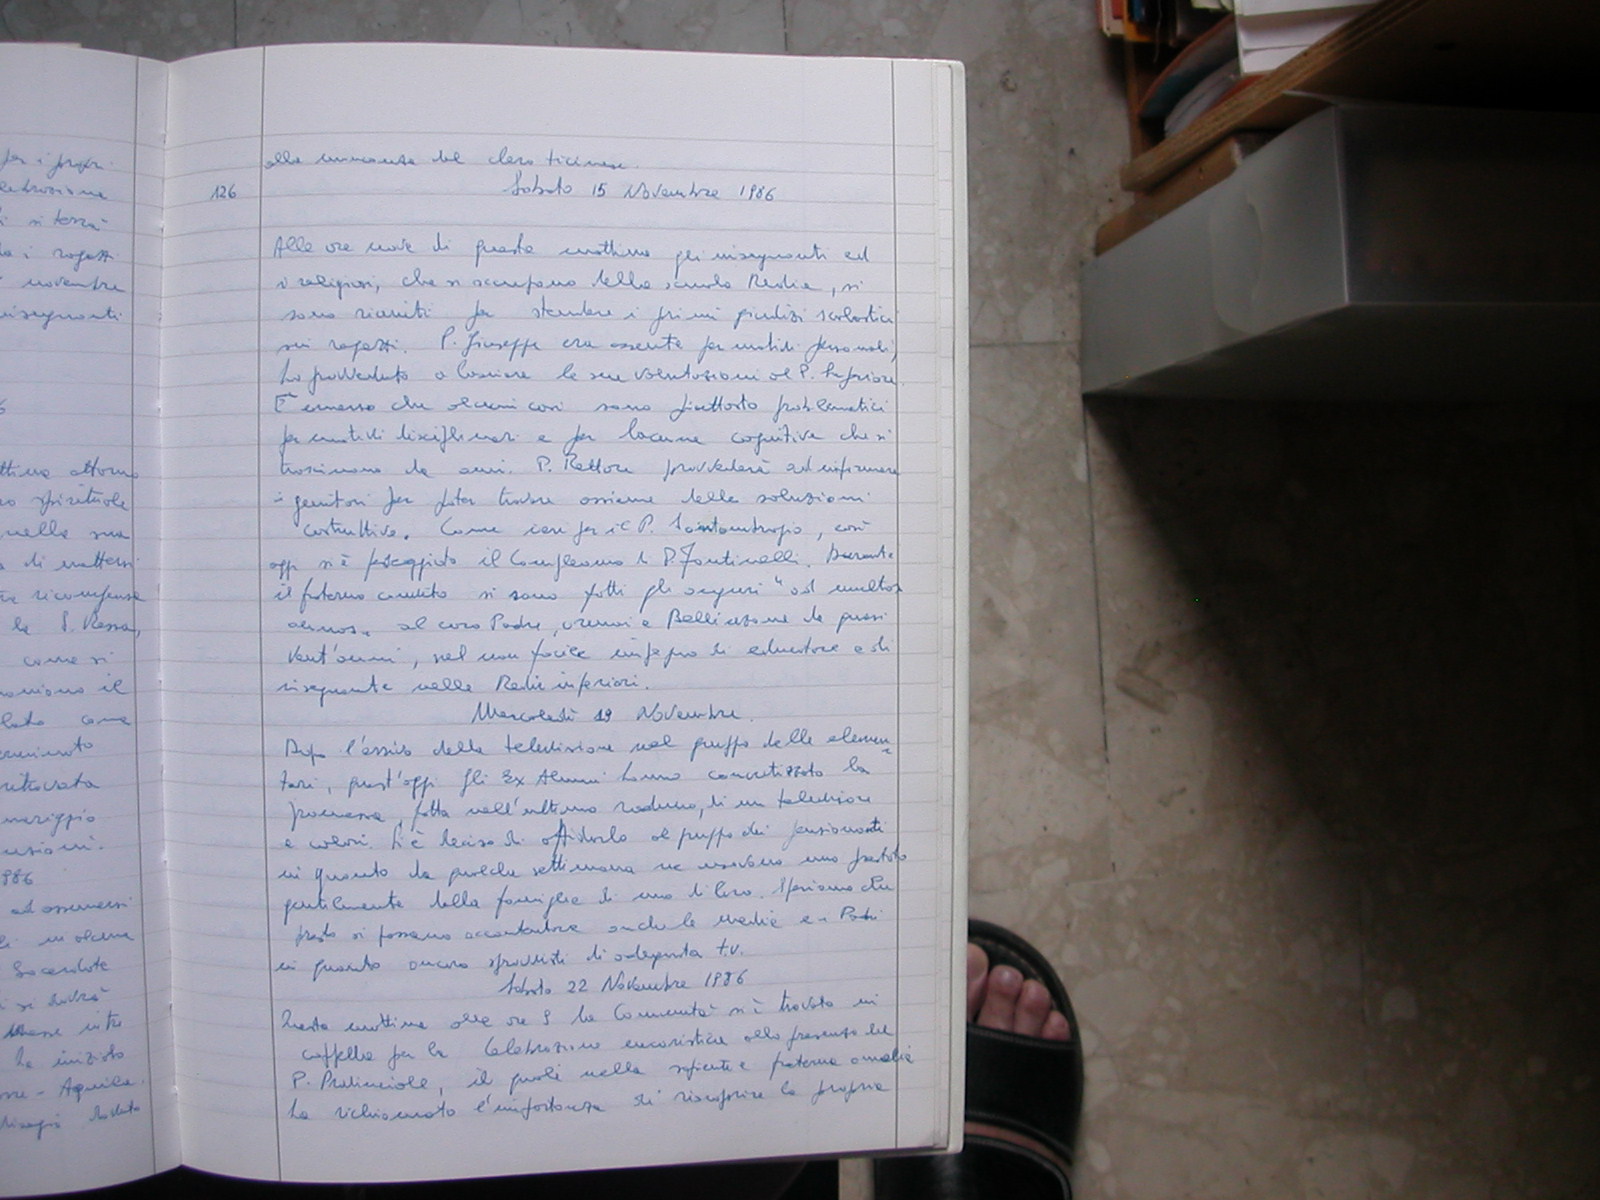 alla mancanza del clero ticinese.
126 Sabato 15 Novembre 1986
Alle ore nove di questa mattina gli insegnanti ed
i religiosi, che si occupano della scuola Media, si
sono riuniti per stendere i primi giudizi scolastici
sui ragazzi. P. Giuseppe era assente per motivi personali,
ha provveduto a lasciare le sue valutazioni al P. Superiore.
È emerso che alcuni casi sono piuttosto problematici
per motivi disciplinari e per lacune cognitive che si
trascinano da anni. P. Rettore provvederà ad informare
i genitori per poter trovare assieme delle soluzioni
costruttive. Come ieri per il P. Santantropio, così
oggi si è festeggiato il Compleanno di P. Fantinelli. Durante
il fraterno convito si sono fatti gli auguri "ad multos
annos" al caro Padre, ormai a Bellinzona da quasi
vent'anni, nel non facile impegno di educatore e di
insegnante nelle Medie inferiori.
Mercoledì 19 Novembre.
Dopo l'arrivo della televisione nel gruppo delle elemen-
tari, quest'oggi gli Ex Alunni hanno concretizzato la
promessa, fatta nell'ultimo raduno, di un televisore
a colori. Si è deciso di affidarlo al gruppo dei pensionanti
in quanto da qualche settimana ne usavano uno prestato
gentilmente dalla famiglia di uno di loro. Speriamo che
presto si possano accontentare anche le medie e i Padri
in quanto ancora sprovvisti di adeguata t.v.
Sabato 22 Novembre 1986
Questa mattina alle ore 9 la Comunità si è trovata in
cappella per la Celebrazione eucaristica alla presenza del
P. Provinciale, il quale nella sapiente e fraterna omelia
ha richiamato l'importanza di riscoprire la propria